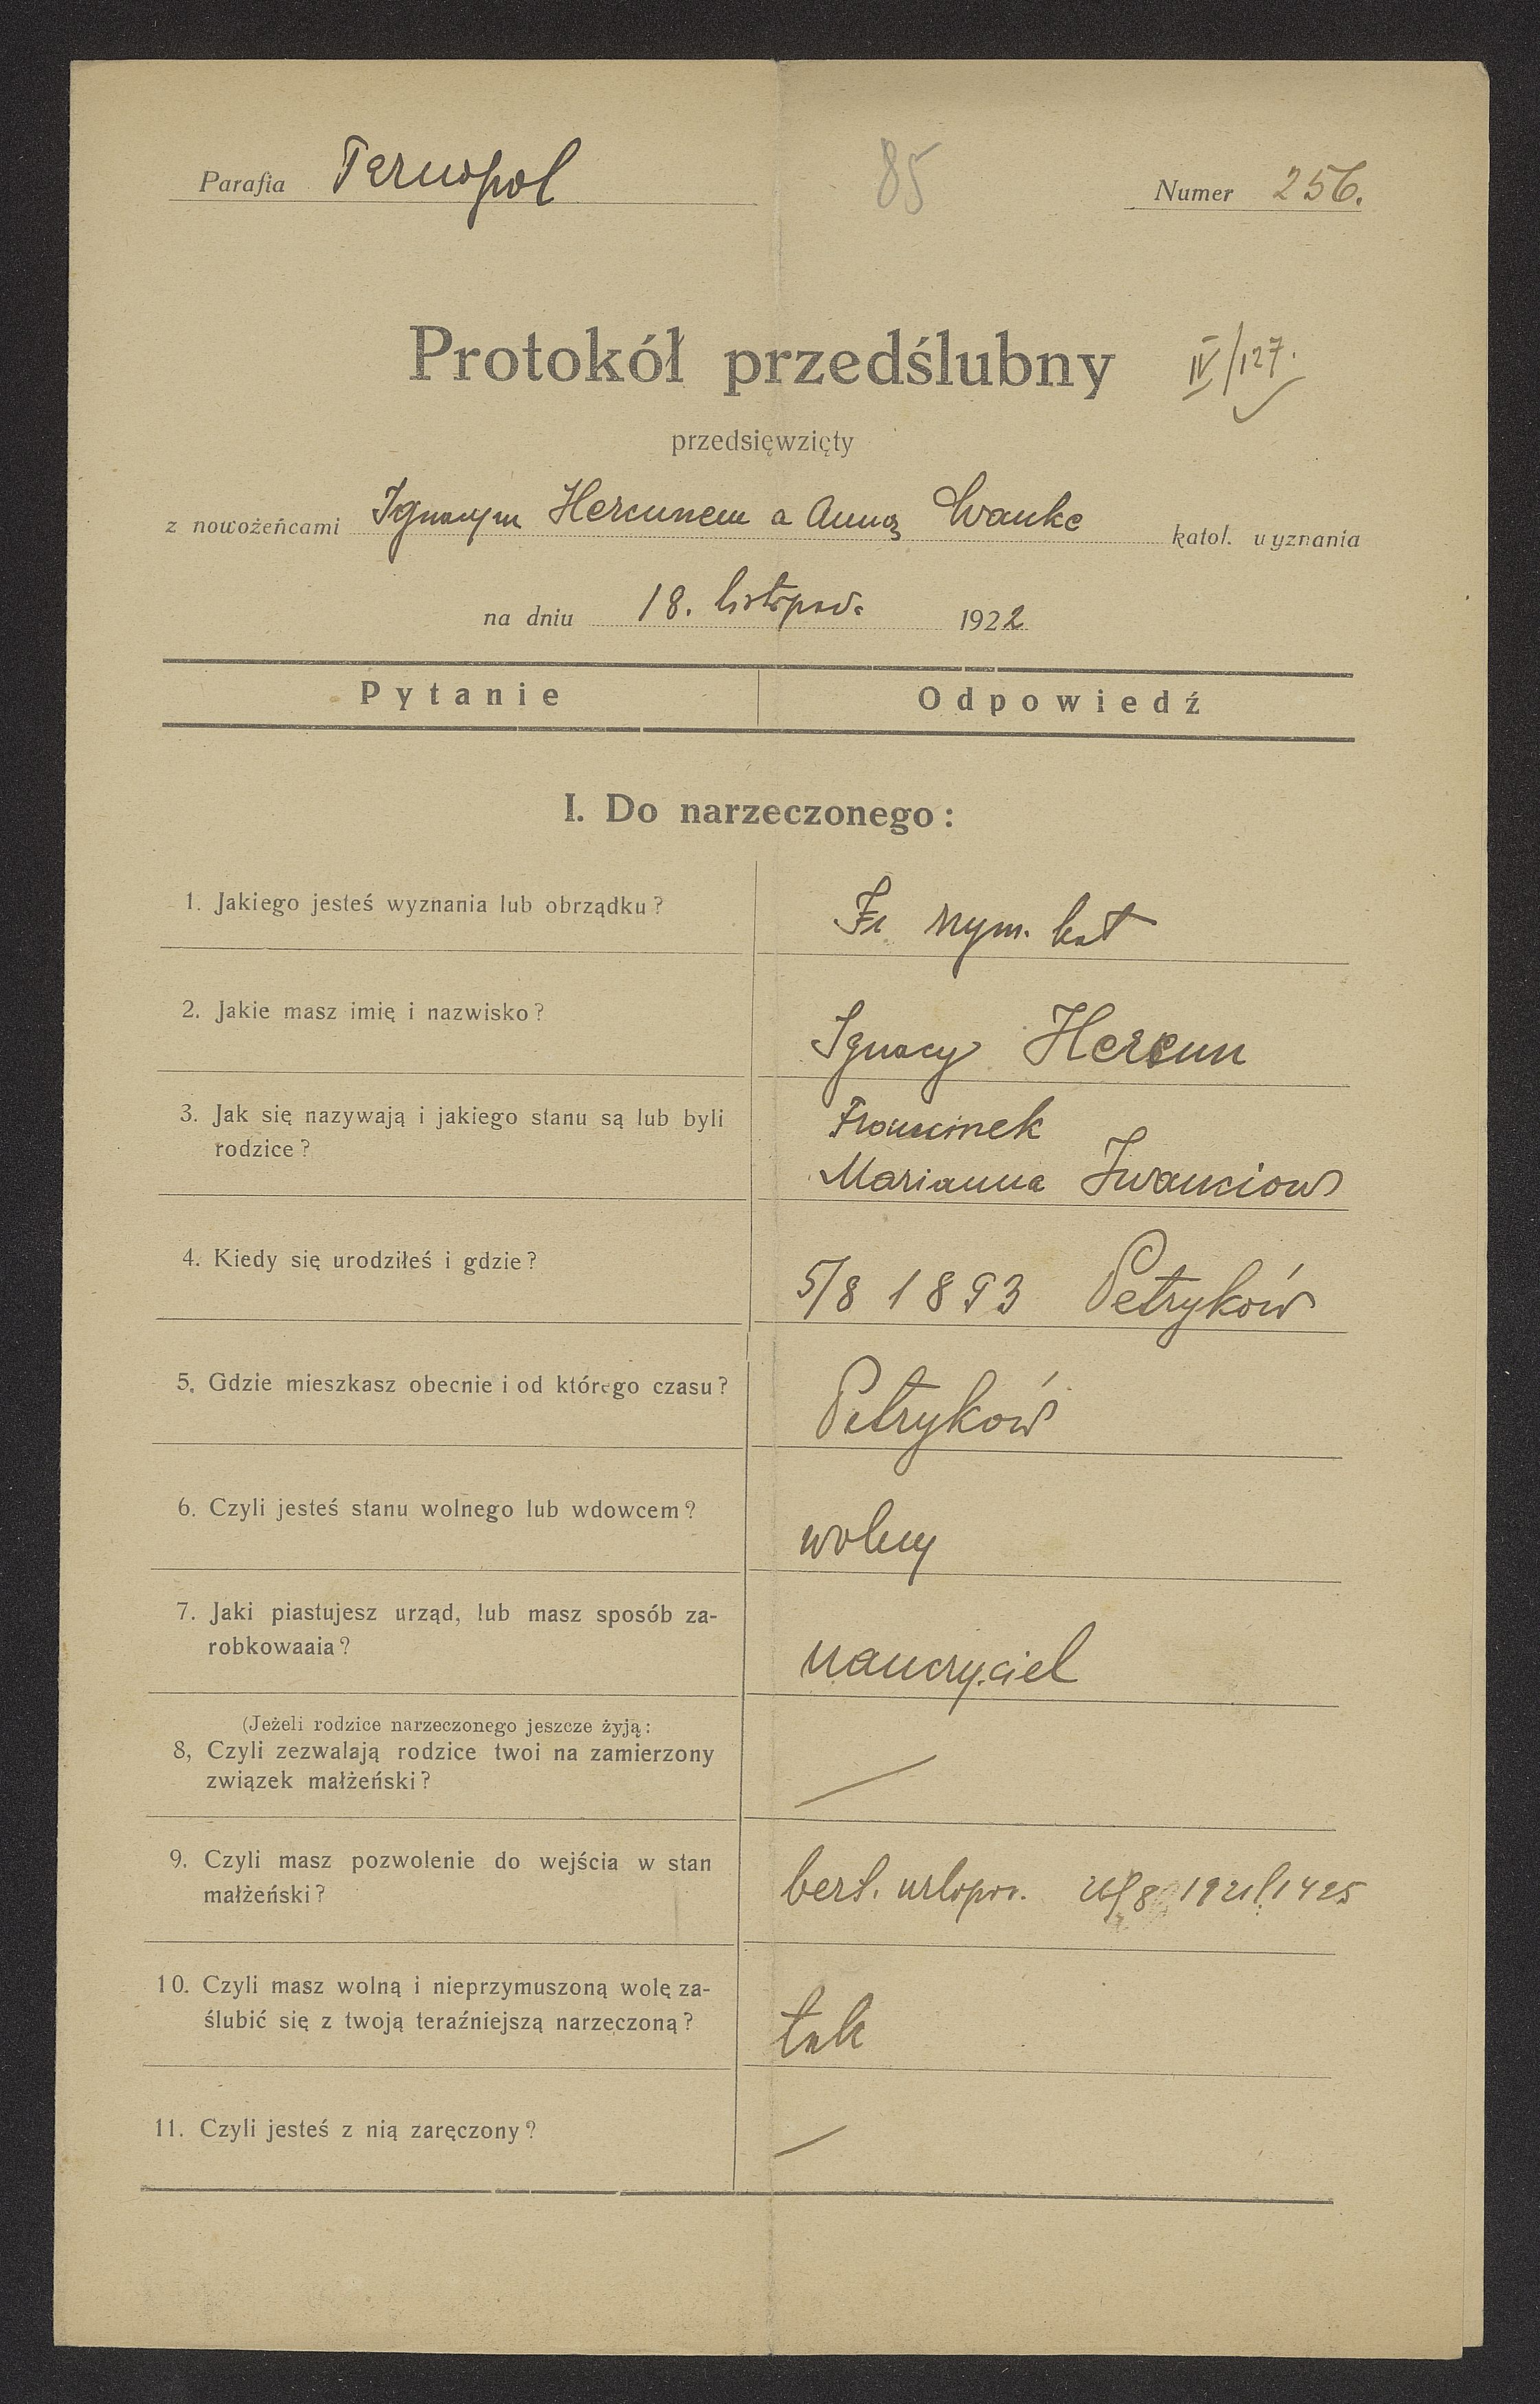 Parafia Ternopol
85
Numer 256.
Protokół przedślubny
IV/127.
przedsięwzięty
z nowożeńcami Ignacym Hercunem a Anną katol. wyznania
na dniu 18. listopad. 1922
Pytanie Odpowiedź
I. Do narzeczonego:
1. Jakiego jesteś wyznania lub obrządku? rzym. kat
2. Jakie masz imię i nazwisko? Ignacy Hercun
3. Jak się nazywają i jakiego stanu są lub byli
rodzice?
Franciszek
Marianna Iwanciow
4. Kiedy się urodziłeś i gdzie? 5/8 1893 Petryków
5. Gdzie mieszkasz obecnie i od którego czasu? Petryków
6. Czyli jesteś stanu wolnego lub wdowcem? wolny
7. Jaki piastujesz urząd, lub masz sposób za-
robkowaaia? nauczyciel
(Jeżeli rodzice narzeczonego jeszcze żyją:
8, Czyli zezwalają rodzice twoi na zamierzony
związek małżeński? —
9. Czyli masz pozwolenie do wejścia w stan
małżeński? 1921 1425
10. Czyli masz wolną i nieprzymuszoną wolę za-
ślubić się z twoją teraźniejszą narzeczoną? tak
11. Czyli jesteś z nią zaręczony? —